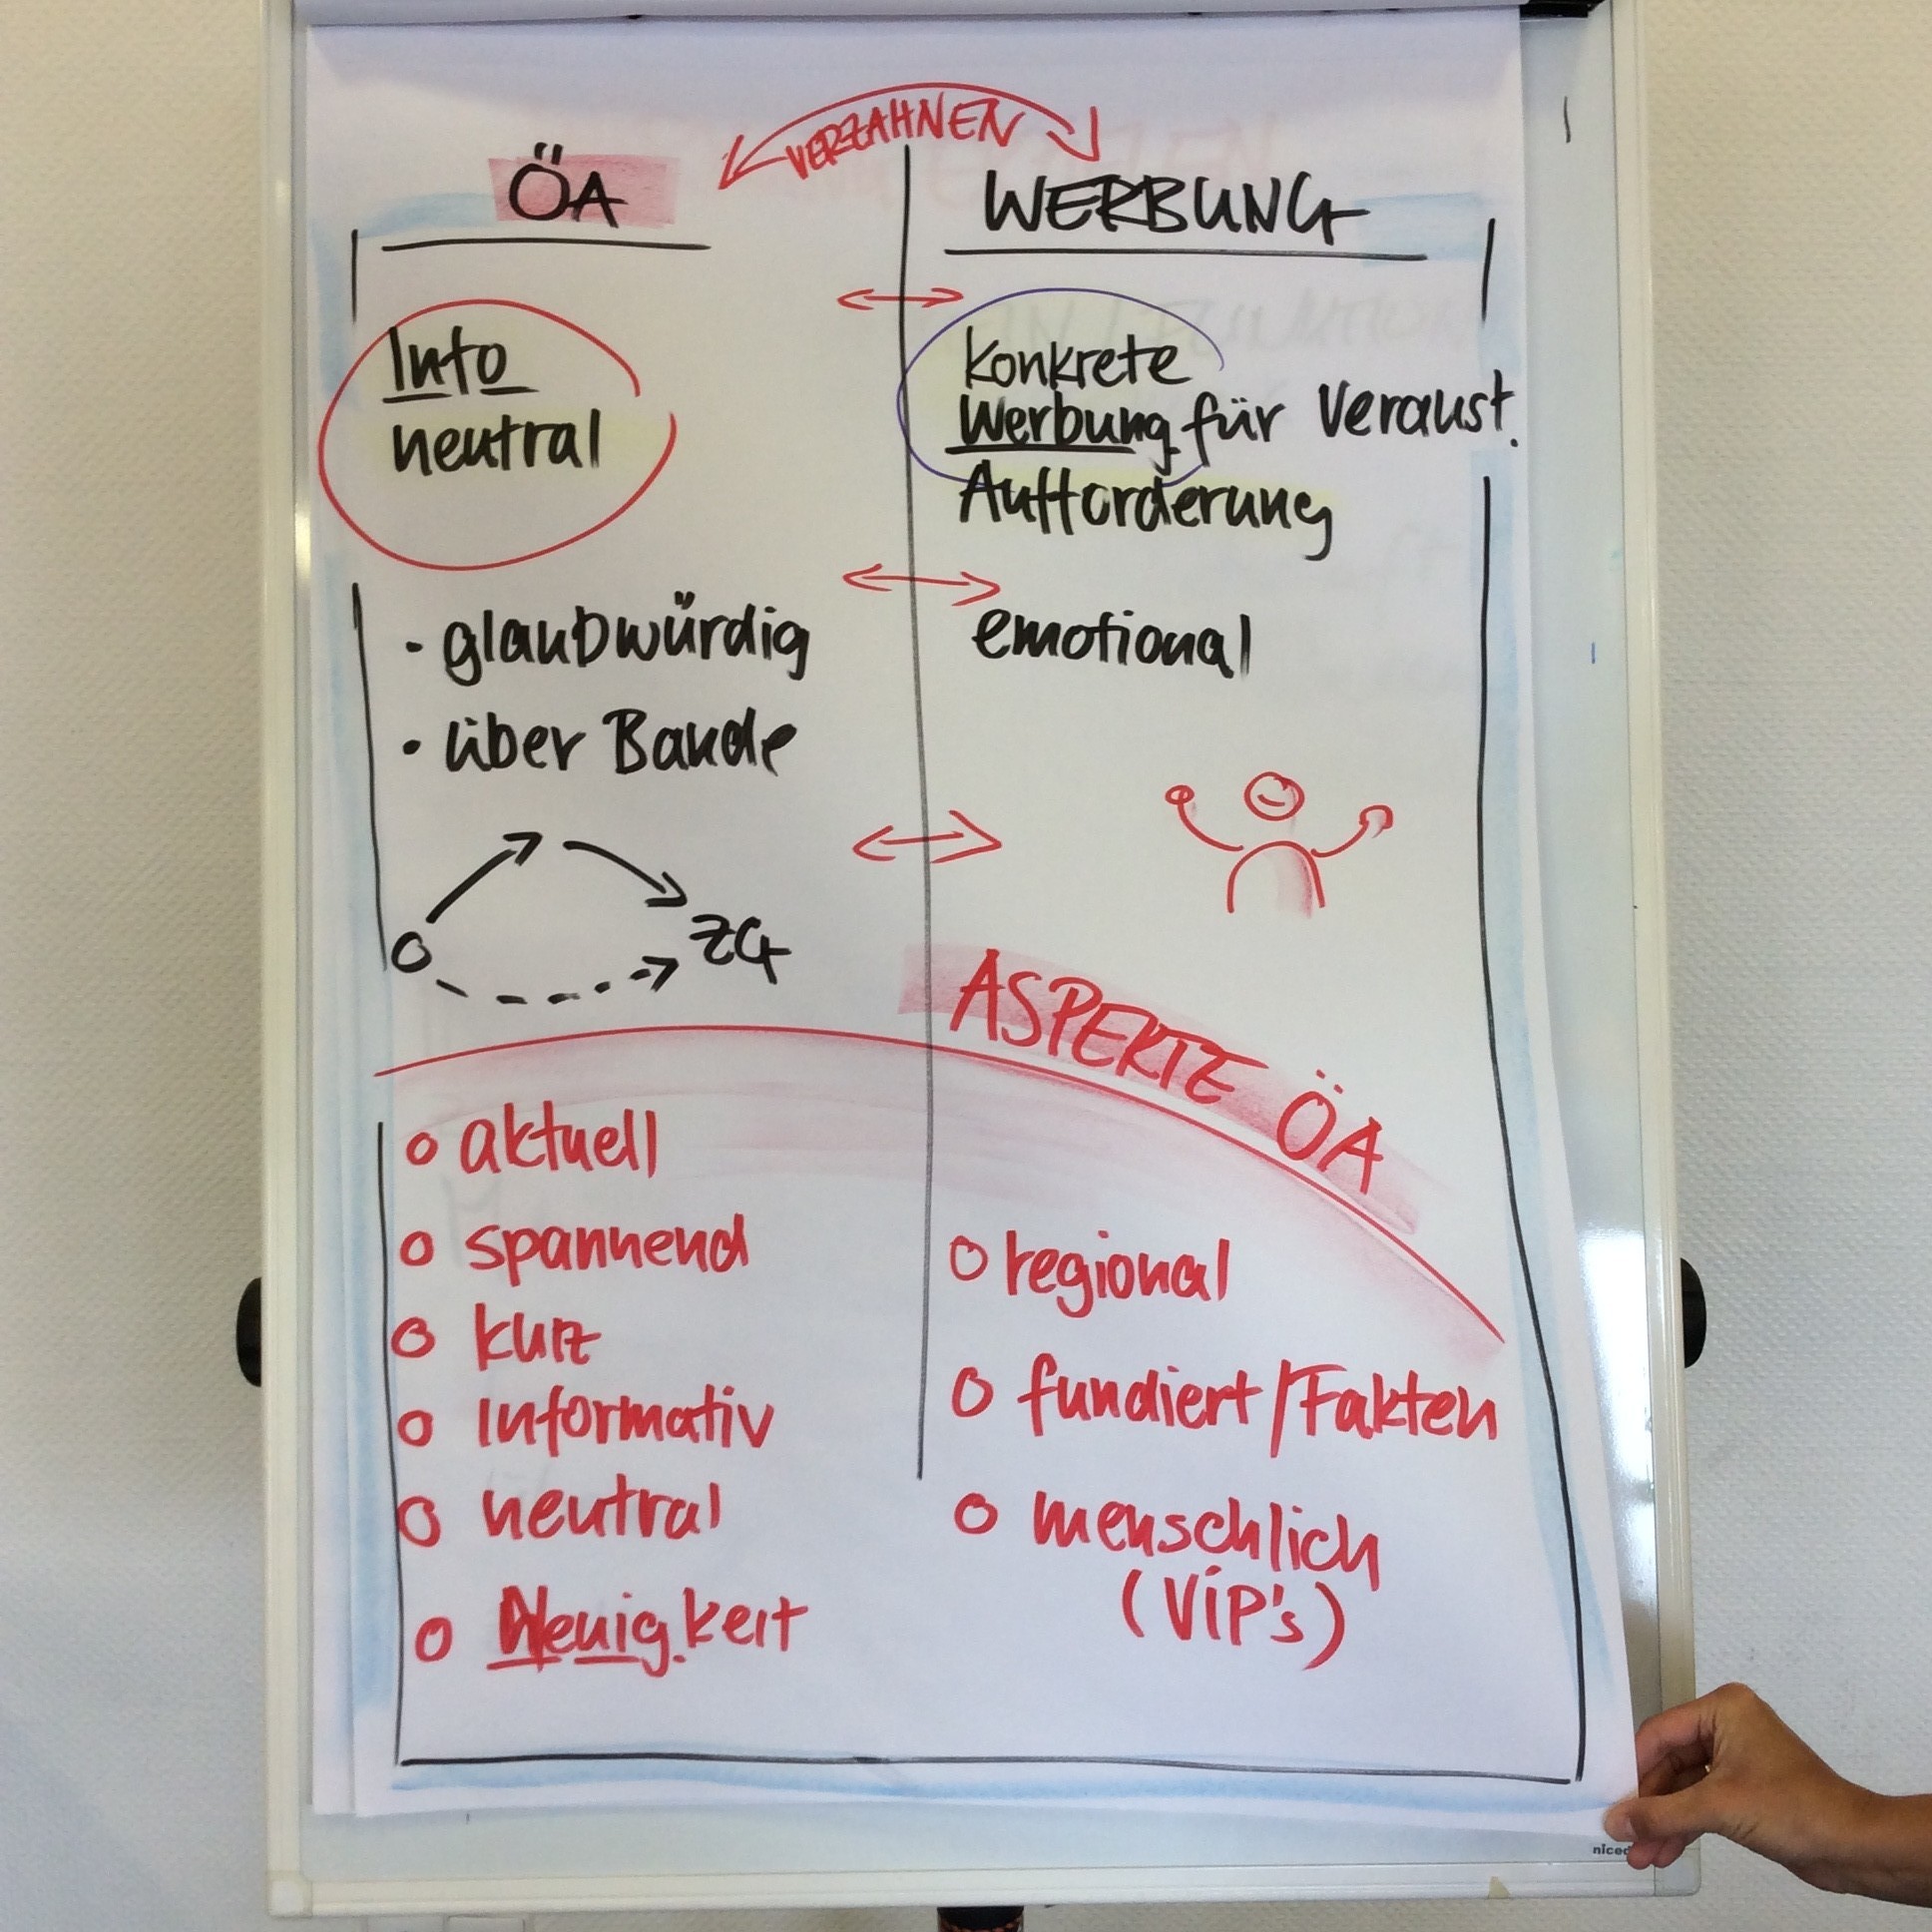 VERZAHNEN
ÖA
WERBUNG
Info
neutral
konkrete
Werbung für Veranst.
Aufforderung
· glaubwürdig
· über Bande
emotional
ZG
ASPEKTE ÖA
o aktuell
o spannend
o kurz
o Informativ
o neutral
o Neuigkeit
o regional
o fundiert/Fakten
o menschlich
(ViP's)